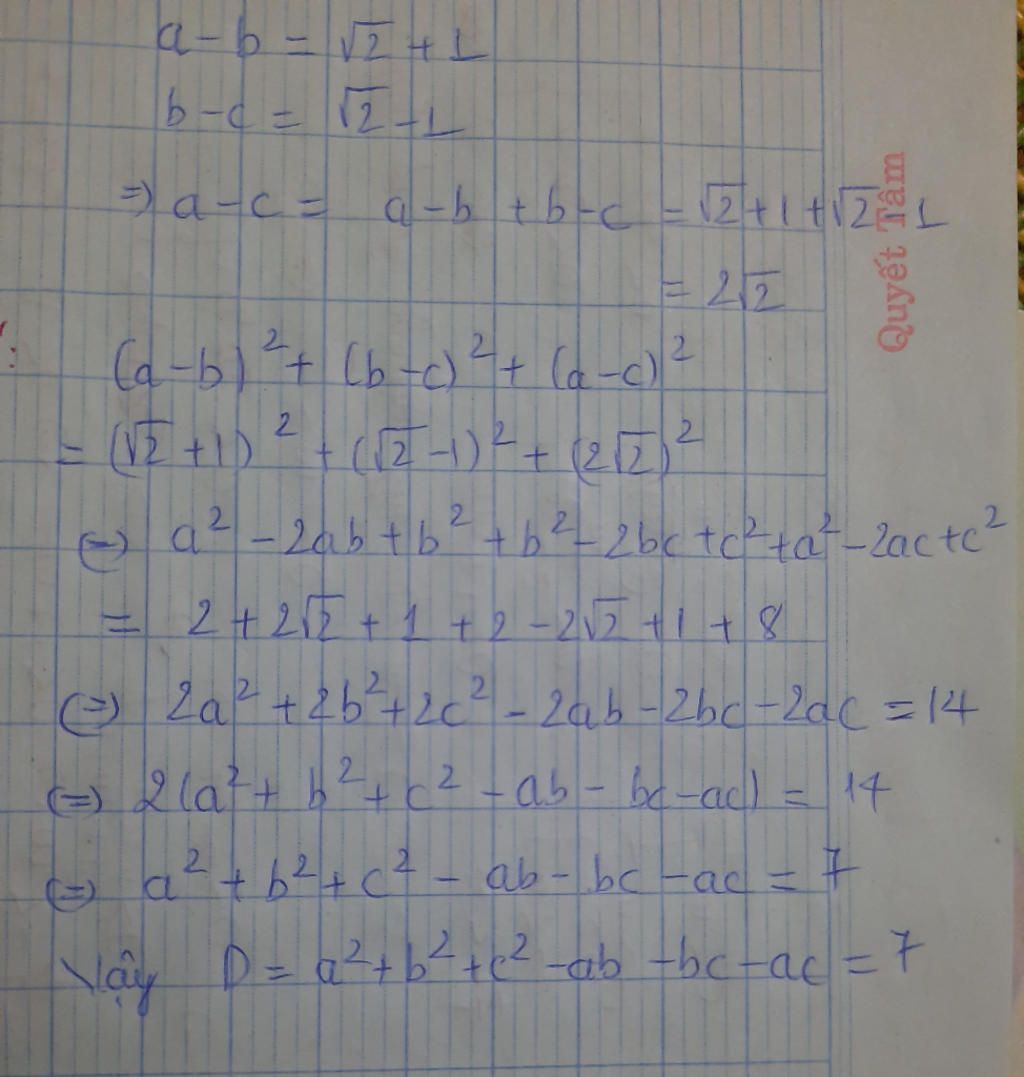 a - b = √2 + 1
b - c = √2 - 1
⇒ a - c = a - b + b - c = √2 + 1 + √2 - 1
= 2√2
(a - b)² + (b - c)² + (a - c)²
= (√2 + 1)² + (√2 - 1)² + (2√2)²
⇔ a² - 2ab + b² + b² - 2bc + c² + a² - 2ac + c²
= 2 + 2√2 + 1 + 2 - 2√2 + 1 + 8
⇔ 2a² + 2b² + 2c² - 2ab - 2bc - 2ac = 14
⇔ 2(a² + b² + c² - ab - bc - ac) = 14
⇔ a² + b² + c² - ab - bc - ac = 7
Vậy D = a² + b² + c² - ab - bc - ac = 7
Quyết Tâm